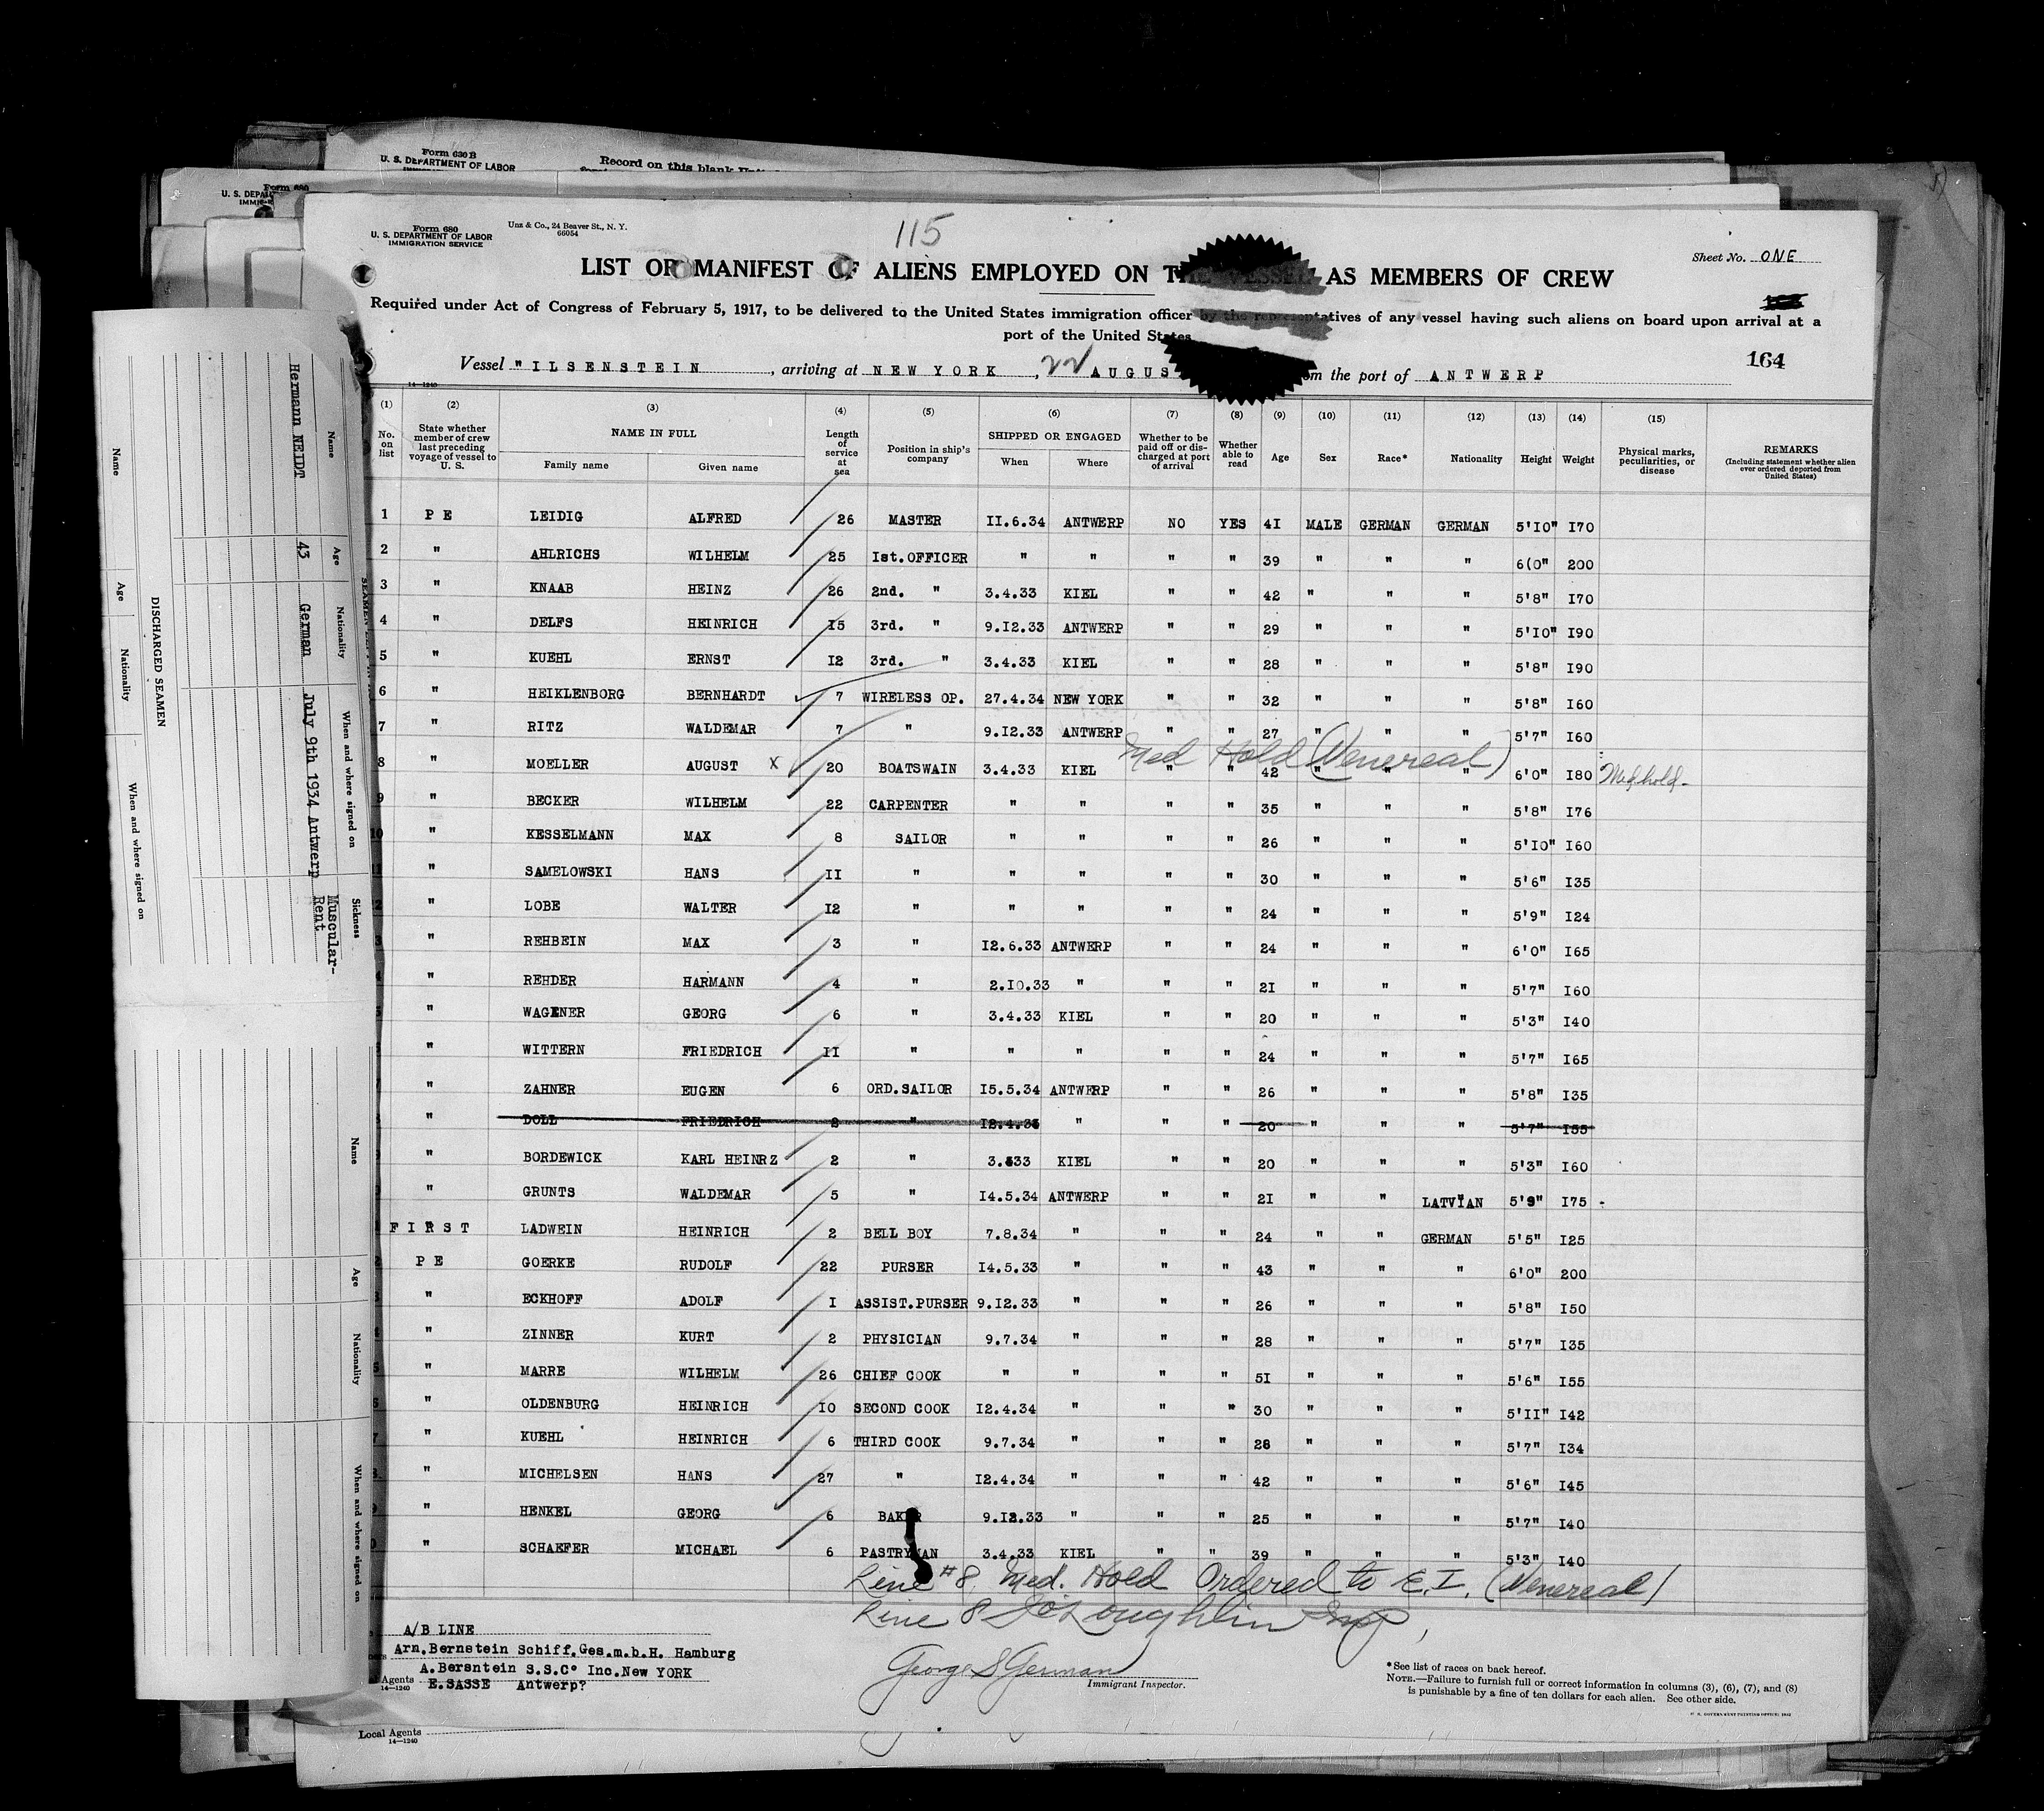 Form 630 B
U. S. DEPARTMENT OF LABOR
Record on this blank
Form 680
U. S.
115
Form 680
U. S. DEPARTMENT OF LABOR
IMMIGRATION SERVICE
Unz & Co., 24 Beaver St., N. Y.
66054
Sheet No. ONE
LIST OR MANIFEST OF ALIENS EMPLOYED ON THE VESSEL AS MEMBERS OF CREW
Required under Act of Congress of February 5, 1917, to be delivered to the United States immigration officer by the representatives of any vessel having such aliens on board upon arrival at a
port of the United States
164
Vessel "ILSENSTEIN, arriving at NEW YORK, 22 AUGUS om the port of ANTWERP
14—1240
(1) (2) (3) (4) (5) (6) (7) (8) (9) (10) (11) (12) (13) (14) (15)
No. on list
State whether member of crew last preceding voyage of vessel to U. S.
NAME IN FULL
Family name
Given name
Length of service at sea
Position in ship's company
SHIPPED OR ENGAGED
When
Where
Whether to be paid off or discharged at port of arrival
Whether able to read
Age
Sex
Race*
Nationality
Height
Weight
Physical marks, peculiarities, or disease
REMARKS
(Including statement whether alien ever ordered deported from United States)
1 P E LEIDIG ALFRED 26 MASTER II.6.34 ANTWERP NO YES 4I MALE GERMAN GERMAN 5'IO" I70
2 " AHLRICHS WILHELM 25 Ist.OFFICER " " " " 39 " " " 6(0" 200
3 " KNAAB HEINZ 26 2nd. " 3.4.33 KIEL " " 42 " " " 5'8" I70
4 " DELFS HEINRICH I5 3rd. " 9.I2.33 ANTWERP " " 29 " " " 5'IO" I90
5 " KUEHL ERNST I2 3rd. " 3.4.33 KIEL " " 28 " " " 5'8" I90
6 " HEIKLENBORG BERNHARDT 7 WIRELESS OP. 27.4.34 NEW YORK " " 32 " " " 5'8" I60
7 " RITZ WALDEMAR 7 " 9.I2.33 ANTWERP " " 27 " " " 5'7" I60
Med Hold (Venereal)
8 " MOELLER AUGUST X 20 BOATSWAIN 3.4.33 KIEL " " 42 " " " 6'0" I80 Med hold-
9 " BECKER WILHELM 22 CARPENTER " " " " 35 " " " 5'8" I76
10 " KESSELMANN MAX 8 SAILOR " " " " 26 " " " 5'IO" I60
11 " SAMELOWSKI HANS II " " " " " 30 " " " 5'6" I35
2 " LOBE WALTER I2 " " " " " 24 " " " 5'9" I24
3 " REHBEIN MAX 3 " I2.6.33 ANTWERP " " 24 " " " 6'0" I65
4 " REHDER HARMANN 4 " 2.IO.33 " " " 2I " " " 5'7" I60
5 " WAGENER GEORG 6 " 3.4.33 KIEL " " 20 " " " 5'3" I40
" WITTERN FRIEDRICH II " " " " " 24 " " " 5'7" I65
7 " ZAHNER EUGEN 6 ORD.SAILOR I5.5.34 ANTWERP " " 26 " " " 5'8" I35
" DOLL FRIEDRICH 2 " I2.4.33 " " " 20 " " " 5'7" I55
" BORDEWICK KARL HEINRZ 2 " 3.533 KIEL " " 20 " " " 5'3" I60
" GRUNTS WALDEMAR 5 " I4.5.34 ANTWERP " " 2I " " LATVIAN 5'9" I75 -
F I R S T LADWEIN HEINRICH 2 BELL BOY 7.8.34 " " " 24 " " GERMAN 5'5" I25
P E GOERKE RUDOLF 22 PURSER I4.5.33 " " " 43 " " " 6'0" 200
" ECKHOFF ADOLF I ASSIST.PURSER 9.I2.33 " " " 26 " " " 5'8" I50
" ZINNER KURT 2 PHYSICIAN 9.7.34 " " " 28 " " " 5'7" I35
5 " MARRE WILHELM 26 CHIEF COOK " " " " 5I " " " 5'6" I55
6 " OLDENBURG HEINRICH IO SECOND COOK I2.4.34 " " " 30 " " " 5'II" I42
7 " KUEHL HEINRICH 6 THIRD COOK 9.7.34 " " " 28 " " " 5'7" I34
8 " MICHELSEN HANS 27 " I2.4.34 " " " 42 " " " 5'6" I45
9 " HENKEL GEORG 6 BAKER 9.I2.33 " " " 25 " " " 5'7" I40
0 " SCHAEFER MICHAEL 6 PASTRYMAN 3.4.33 KIEL " " 39 " " " 5'3" I40
Line #8. Med. Hold Ordered to E.I. (Venereal)
Line 8 Insp,
A/B LINE
Arn.Bernstein Schiff.Ges.m.b.H. Hamburg
A.Bersntein S.S.Co Inc.New YORK
Agents E.SASSE Antwerp?
14—1240
George S German
Immigrant Inspector.
*See list of races on back hereof.
NOTE.—Failure to furnish full or correct information in columns (3), (6), (7), and (8)
is punishable by a fine of ten dollars for each alien. See other side.
Local Agents
14—1240
DISCHARGED SEAMEN
Name
Age
Nationality
When and where signed on
Name Age Nationality When and where signed on Sickness
Hermann NEIDT 43 German July 9th 1934 Antwerp Muscular-
Rent
Name
Age
Nationality
When and where signed on